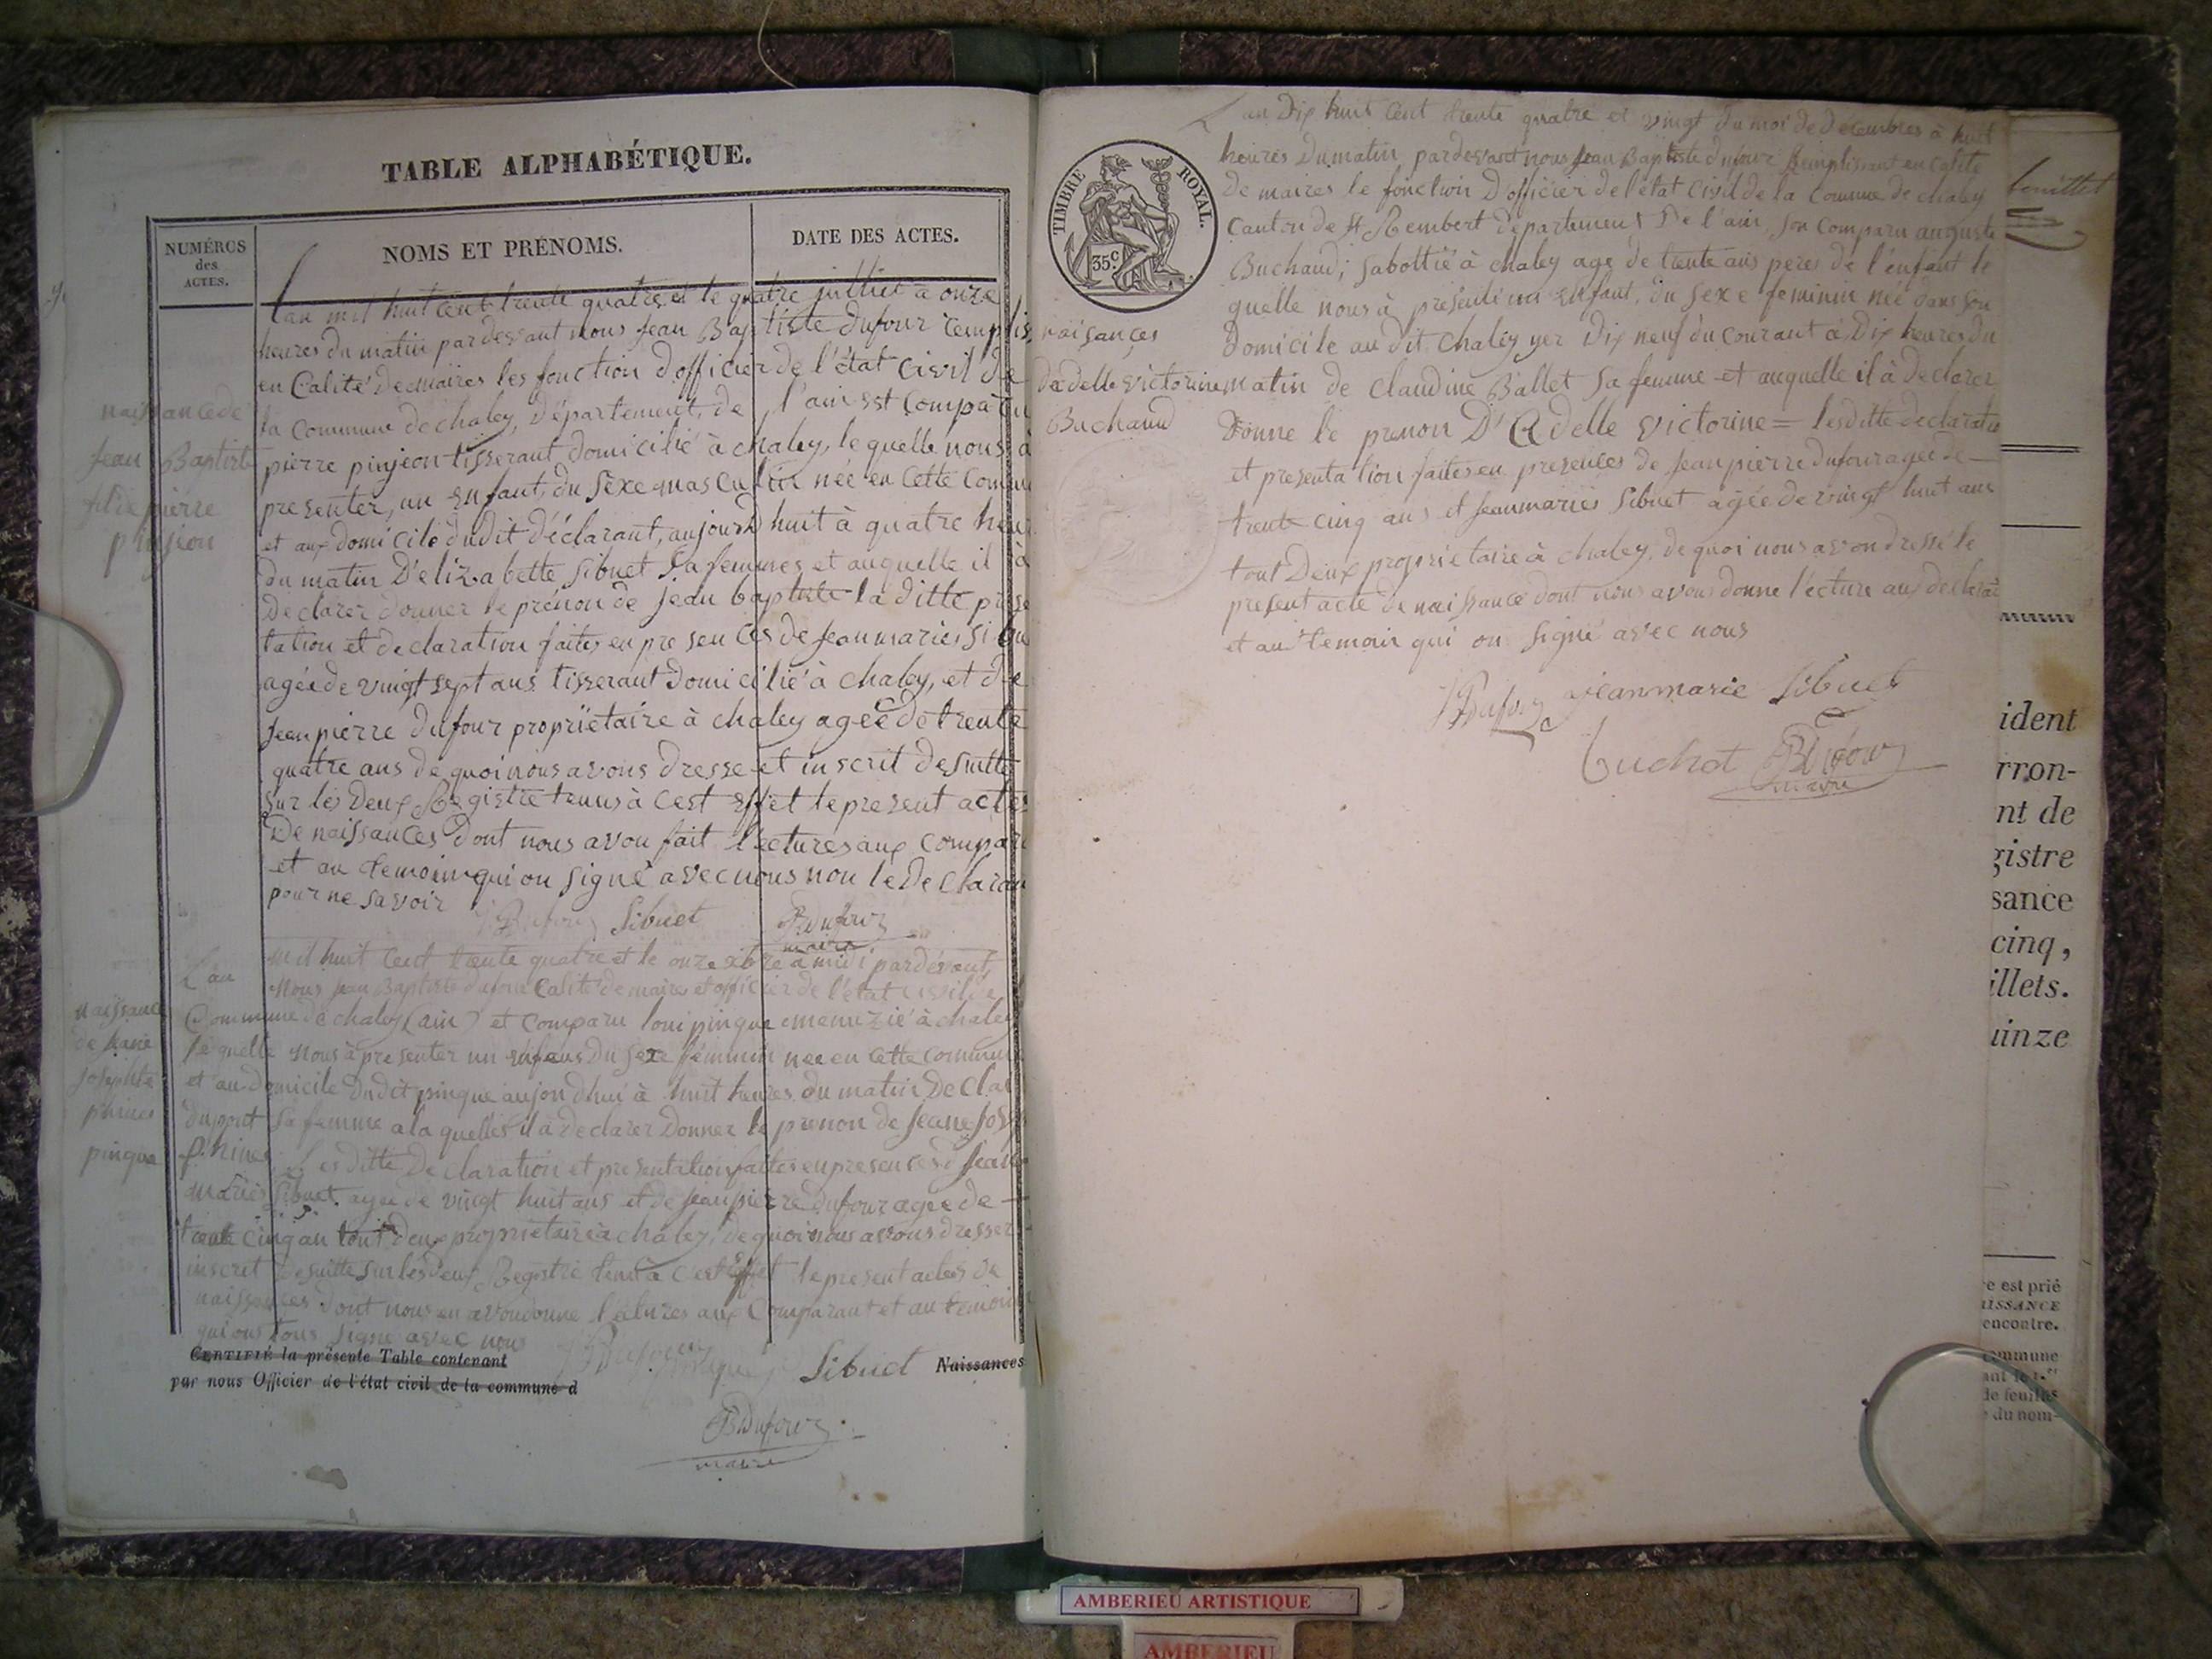 TABLE ALPHABÉTIQUE.
NUMÉROS
des
ACTES.
NOMS ET PRÉNOMS.
DATE DES ACTES.
Lan mil huit cent trente quatre et le quatre julliet à onze
heures du matin pardevant nous Jean Baptiste Dufour remplis
en Calité de maires les fonction d'officier de l'état civil de
la Commune de chaley, Département, de l'ain est comparu
pierre pinjeon tisserant domicilié à chaley, le quelle nous à
presenter, un enfant, du Séxe masculin née en cette commu
et aux domicile dudit déclarant, aujourd huit à quatre heur
du matin D'elizabette Sibuet Sa femmes et auquelle il à
Declarer donner le prénon de jean baptiste la ditte prése
tation et declaration faites en presences de Jean maries Sibu
agée de vingt sept ans tisserant Domicilié à chaley, et de
Jean pierre dufour propriétaire à chaley agée de trente
quatre ans de quoi nous avons dresse et inscrit de suitte
Sur les Deux Registre tenus à cest effet le present actes
De naissances dont nous avon fait l'ectures aux compara
et au temoin qui on signé avec nous non le Declaran
pour ne Savoir
naissance de
Jean Baptiste
pierre
pinjeon
Sibuet
maire
L'an mil huit Cent trente quatre et le onze xbre à midi pardevant,
Nous Jean Baptiste dufour Calité de maires et officier de l'état civil de
Commune de chaley (ain) et comparu loui pingue menuzié à chaley
le quelle nous à presenter un enfans du Sexe féminin nee en cette commun
et au domicile Dudit pingue aujourdhui à huit heures du matin De Cla
dupont Sa femme a la quelles il à Declarer Donner le prenon de Jeane Jose
phines Les ditte Declaration et presentation faites en presences de Jean
maries Sibuet agee de vingt huit ans et de Jean pierre Dufour agee de
trente cinq an tout deux proprietaire à chaley, de quoi nous avons dresser
inscret de suitte sur les deux Registre tenu à c'est effet le present actes de
naissances dont nous en avon donne l'ectures aux Comparant et au temoin
qui ons tous signe avec nous
naissance
de Jeane
josephte
phines
pingue
Sibuet
CERTIFIÉ la présente Table contenant
Naissances
par nous Officier de l'état civil de la commune d
Dufour
maire
TIMBRE ROYAL.
35 c.
L an Dix huit Cent trente quatre et vingt du moi de Decembres à huit
heures Du matin pardevant nous Jean Baptiste dufour Remplissant en calite
De maires le fonction D'officier de l'état Civil de la Commune de chaley
Canton de St Rembert Departement De l'ain, son Comparu auguste
Buchaud; Sabottié à chaley age de trente ans peres de l'enfant le
quelle nous à présenti un enfant, du Sexe feminin née dans son
Domicile au dit Chaley yer Dix neuf du courant à Dix heures du
matin de Claudine Ballet Sa femme et auquelle il à declarer
Donne le prenon D'Adelle Victorine = les ditte declaration
et presentation faites en presences de Jean pierre dufour agée de
trente cinq ans et Jean maries Sibuet agée de vingt huit ans
tout Deux proprietaire à chaley, de quoi nous avon dressé le
present acte de naissance dont nous avons donne l'ecture aux declarat
et au temoin qui on Signé avec nous
naisances
dadelle victorine
Buchaud
Dufour Jeanmarie Sibuet
buchot Dufour
maire
ident
rron-
nt de
gistre
sance
cinq,
illets.
uinze
e est prié
ISSANCE
encontre.
ommune
ant le 1.er
de feuilles
du nom-
AMBERIEU ARTISTIQUE
AMBERIEU